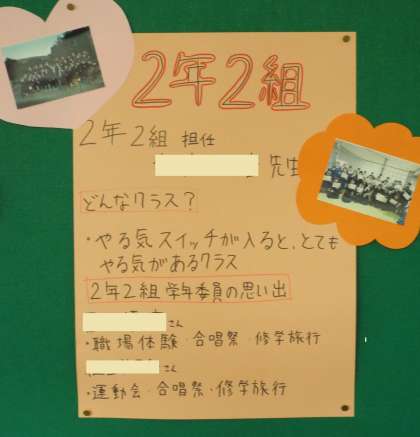 2年2組
2年2組 担任
先生
どんなクラス?
・やる気スイッチが入ると、とても
やる気があるクラス
2年2組 学年委員の思い出
さん
・職場体験・合唱祭・修学旅行
さん
・運動会・合唱祭・修学旅行